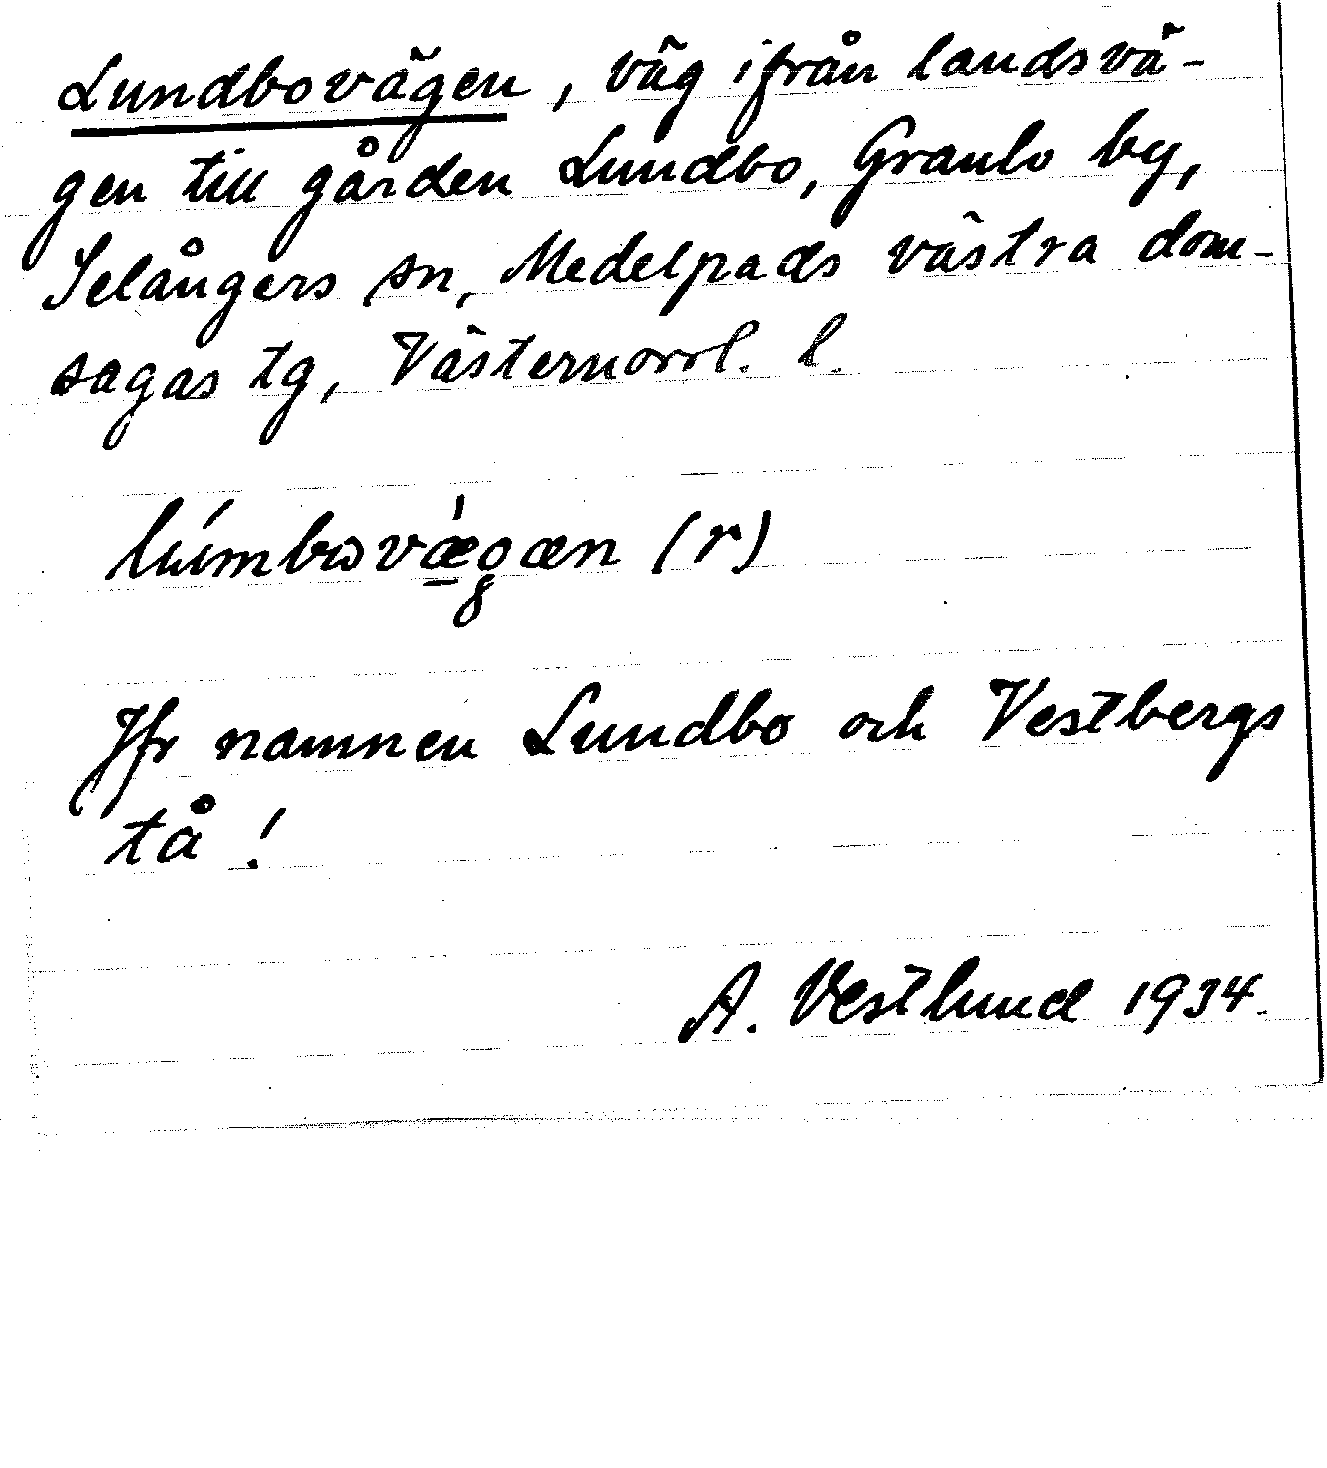 Lundbovägen, väg ifrån landsvä-
gen till gården Lundbo, Granlo by,
Selångers sn, Medelpads västra dom-
sagas tg, Västernorrl. l.
(r)
Jfr namnen Lundbo och Vestbergs
tå!
A. Vestlund 1934.